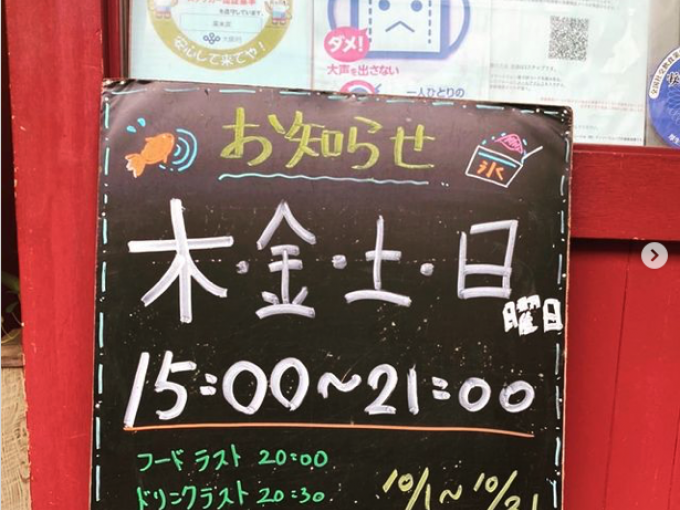 安心して来てや!
ダメ!
大声を出さない
一人ひとりの
お知らせ
氷
木・金・土・日
曜日
15:00~21:00
フードラスト 20:00
ドリンクラスト 20:30
10/1~10/31